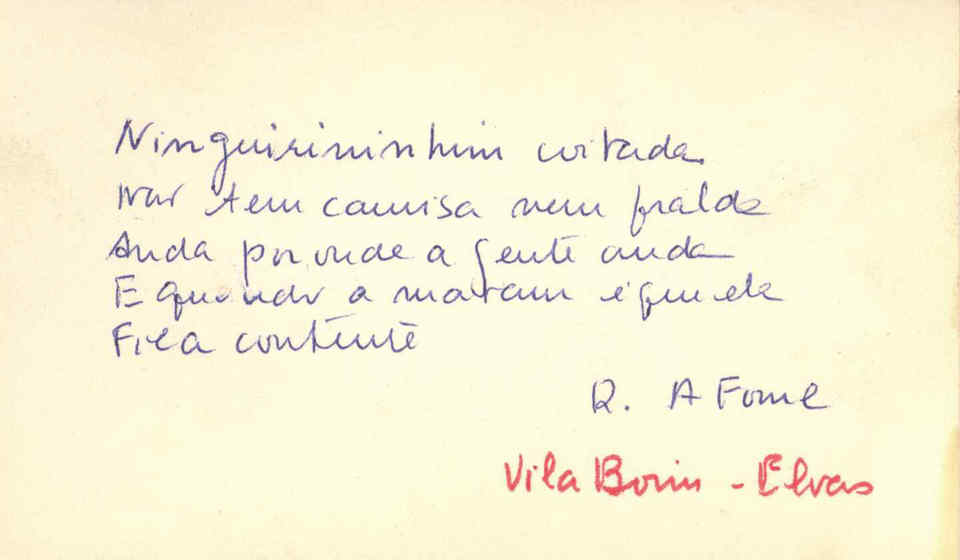 Ninguirininhim coitada
Não tem camisa nem fralda
Anda por onde a gente anda
E quando a matam é que ela
Fica contente
R. A Fome
Vila Boim - Elvas